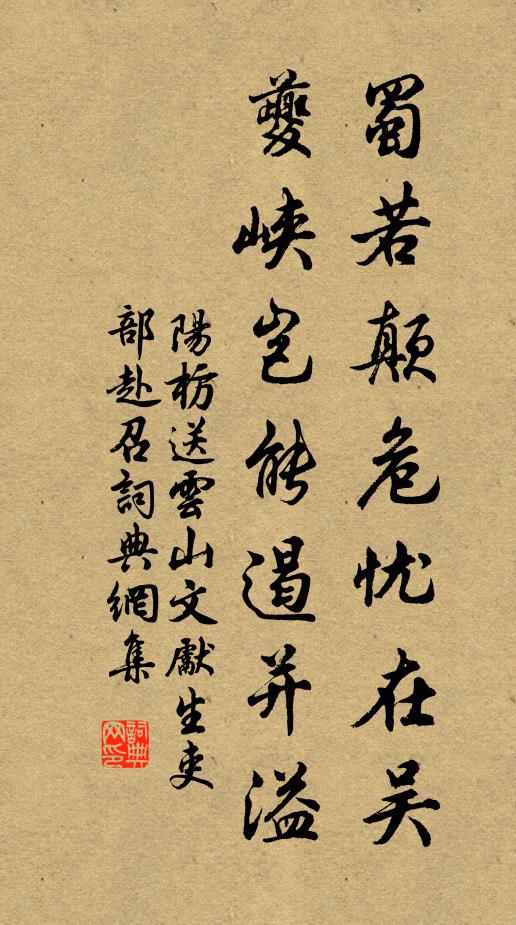 蜀若颠危忧在吴
夔峡岂能遏并溢
陽枋送雲山文獻生吏
部赴召詞典網集
詞典
网印